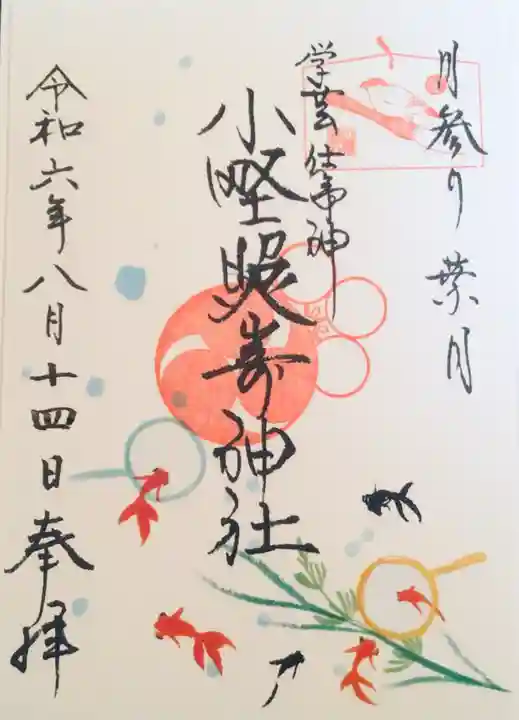 月参り 葉月
学芸仕事神
小野照崎神社
令和六年八月十四日 奉拝